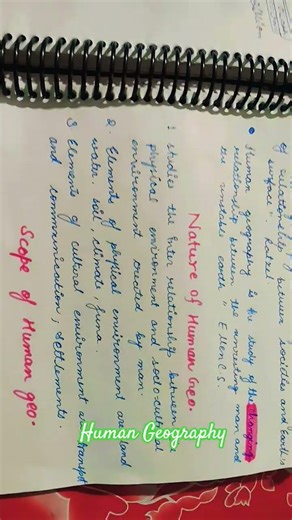 of relationship between societies and Earth's
surface": Ratzel
• Human geography is the study of the changing
relationship between the unresting man and
the unstable earth" E.C.S.
Nature of Human Geo.
1 studies the inter relationship between
physical environment and socio-cultural
environment created by man.
2. Elements of physical environment are land
water, soil, climate,
3 Elements of cultural environment are
and communication, settlements.
Scope of Human geo.
Human Geography